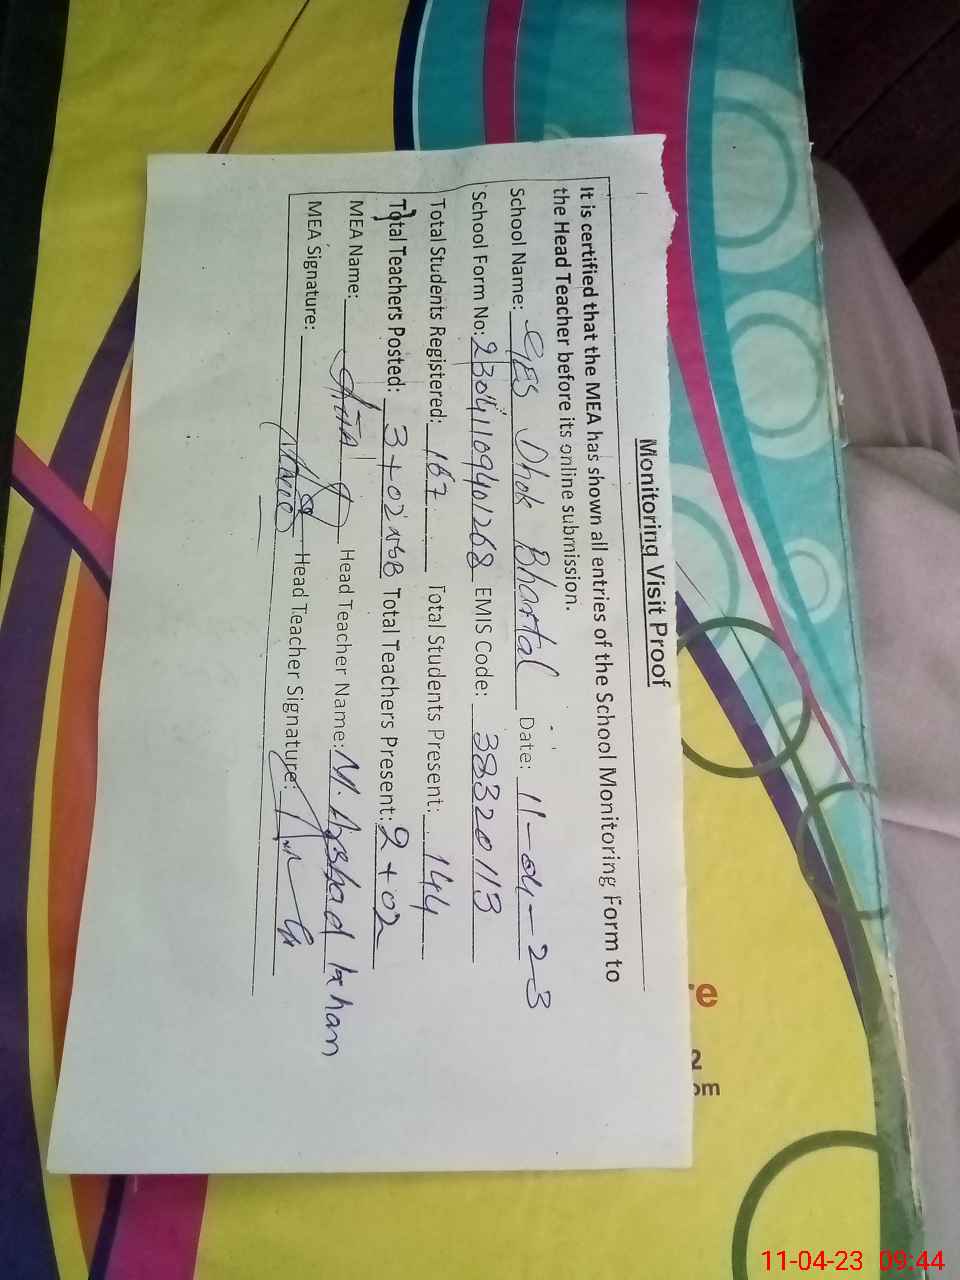 Monitoring Visit Proof
It is certified that the MEA has shown all entries of the School Monitoring Form to
the Head Teacher before its online submission.
School Name: GES Dhok Bhartal Date: 11-04-23
School Form No: 23041109401268 EMIS Code: 38320113
Total Students Registered: 167 Total Students Present: 144
Total Teachers Posted: 3+02 NSB Total Teachers Present: 2+02
MEA Name: Head Teacher Name: M. Arshad Khan
MEA Signature: Head Teacher Signature:
re
2
om
11-04-23 09:44